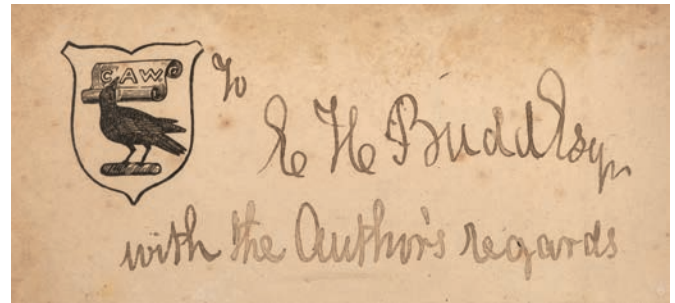 CAW
To
E H Budd Esqr
with the Author's regards